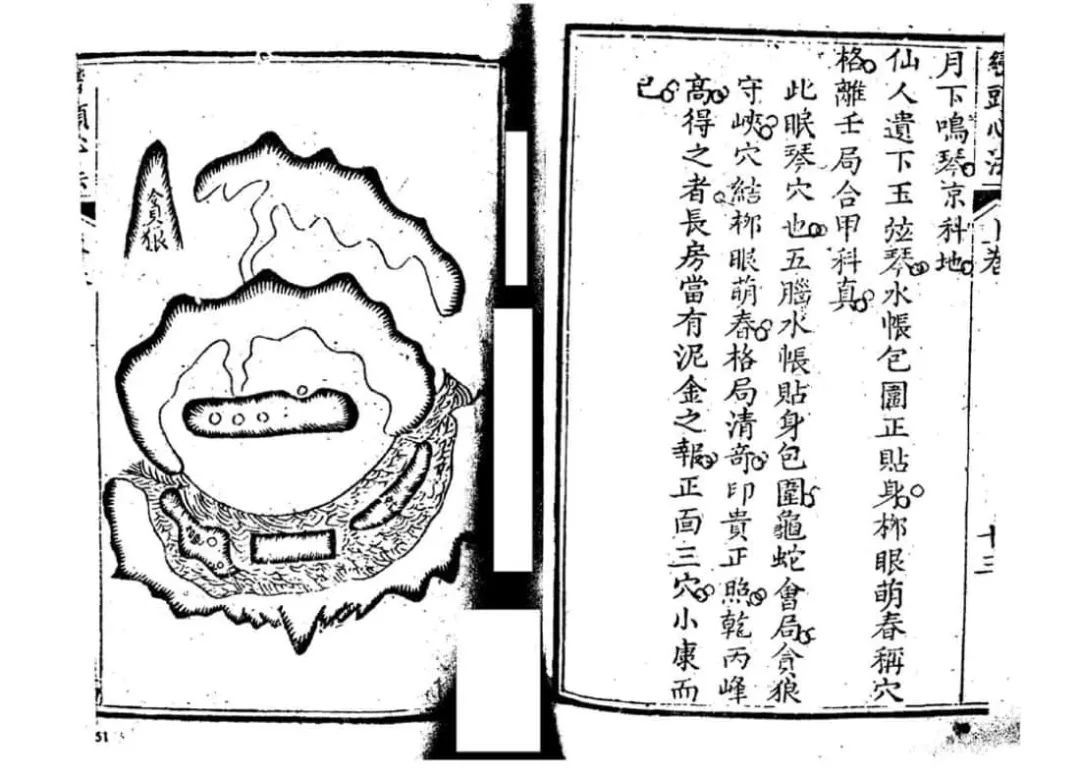 巒頭心法
上卷
十三
月下鳴琴京科地
仙人遺下玉弦琴水帳包圍正貼身栁眼萌春稱穴
格離壬局合甲科真
此眠琴穴也五腦水帳貼身包圍龜蛇會局貪狼
守峽穴結栁眼萌春格局清奇印貴正照乾丙峰
高得之者長房當有泥金之報正面三穴小康而
已
貪狼
51